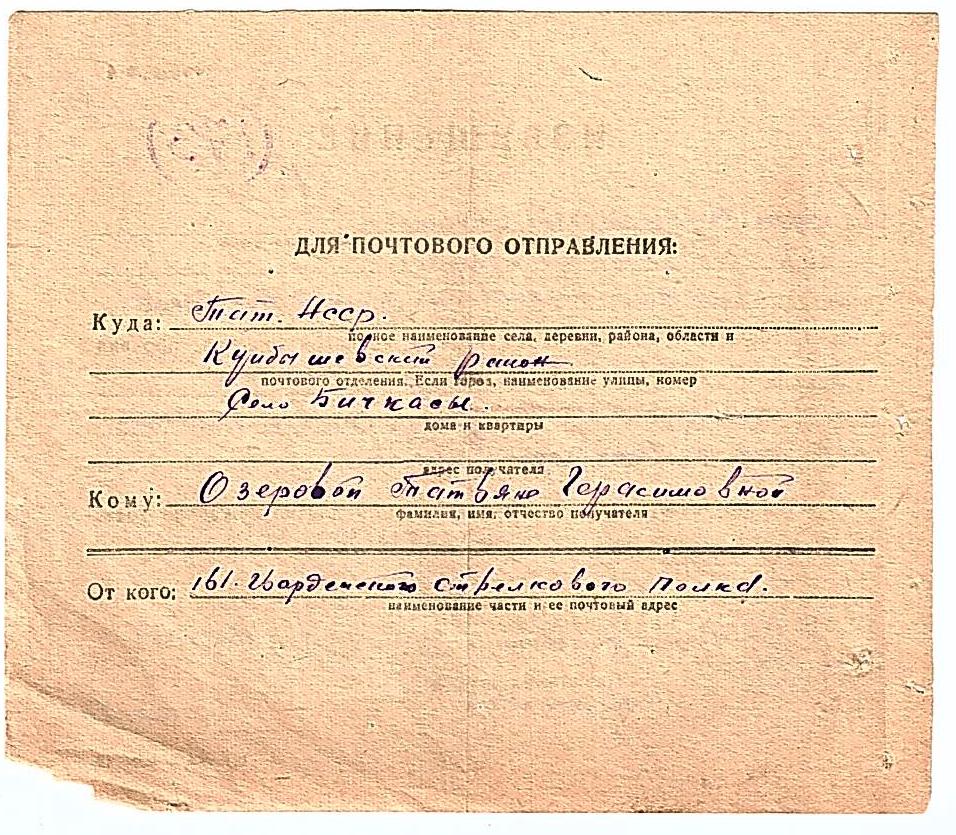 ДЛЯ ПОЧТОВОГО ОТПРАВЛЕНИЯ:
Куда: Тат. АССР.
полное наименование села, деревни, района, области и
Куйбышевский район
почтового отделения. Если город, наименование улицы, номер
Село Бичкасы.
дома и квартиры
адрес получателя
Кому: Озеровой Татьяне Герасимовной
фамилия, имя, отчество получателя
От кого: 161. Гвардейского стрелкового полка.
наименование части и ее почтовый адрес